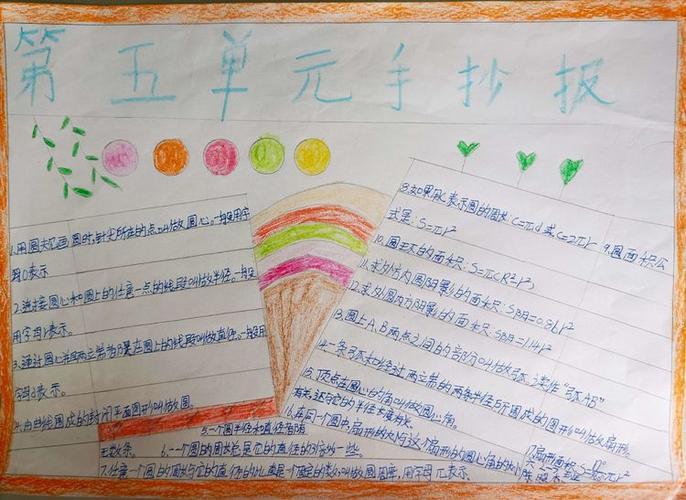 第五单元手抄报
1.用圆规画圆时,针尖所在的点叫做圆心。一般用字
母O表示
2.连接圆心和圆上的任意一点的线段叫做半径。一般
用字母r表示。
3.通过圆心并且两端都在圆上的线段叫做直径。一般用
字母d表示。
4.由曲线围成的封闭平面图形叫做圆。
5.一个圆半径和直径有
无数条。
6.一个圆的周长总是它的直径的3倍多一些。
7.任意一个圆的周长与它的直径的比值是一个固定的数叫做圆周率,用字母π表示。
8.如果用C表示圆的周长C=πd或C=2πr
9.圆面积公
式是:S=πr²
10.圆环的面积:S=π(R²-r²)
11.求外方内圆阴影的面积:S阴=0.86r²
12.求外圆内方阴影的面积:S阴=1.14r²
13.圆上A、B两点之间的部分叫做弧,读作"弧AB"
一条弧和经过两端的两条半径所围成的图形叫做扇形。
15.顶点在圆心的角叫做圆心角。
16.在同一个圆中,扇形的大小与这个扇形的圆心角的大小
有关
17.扇形面积: